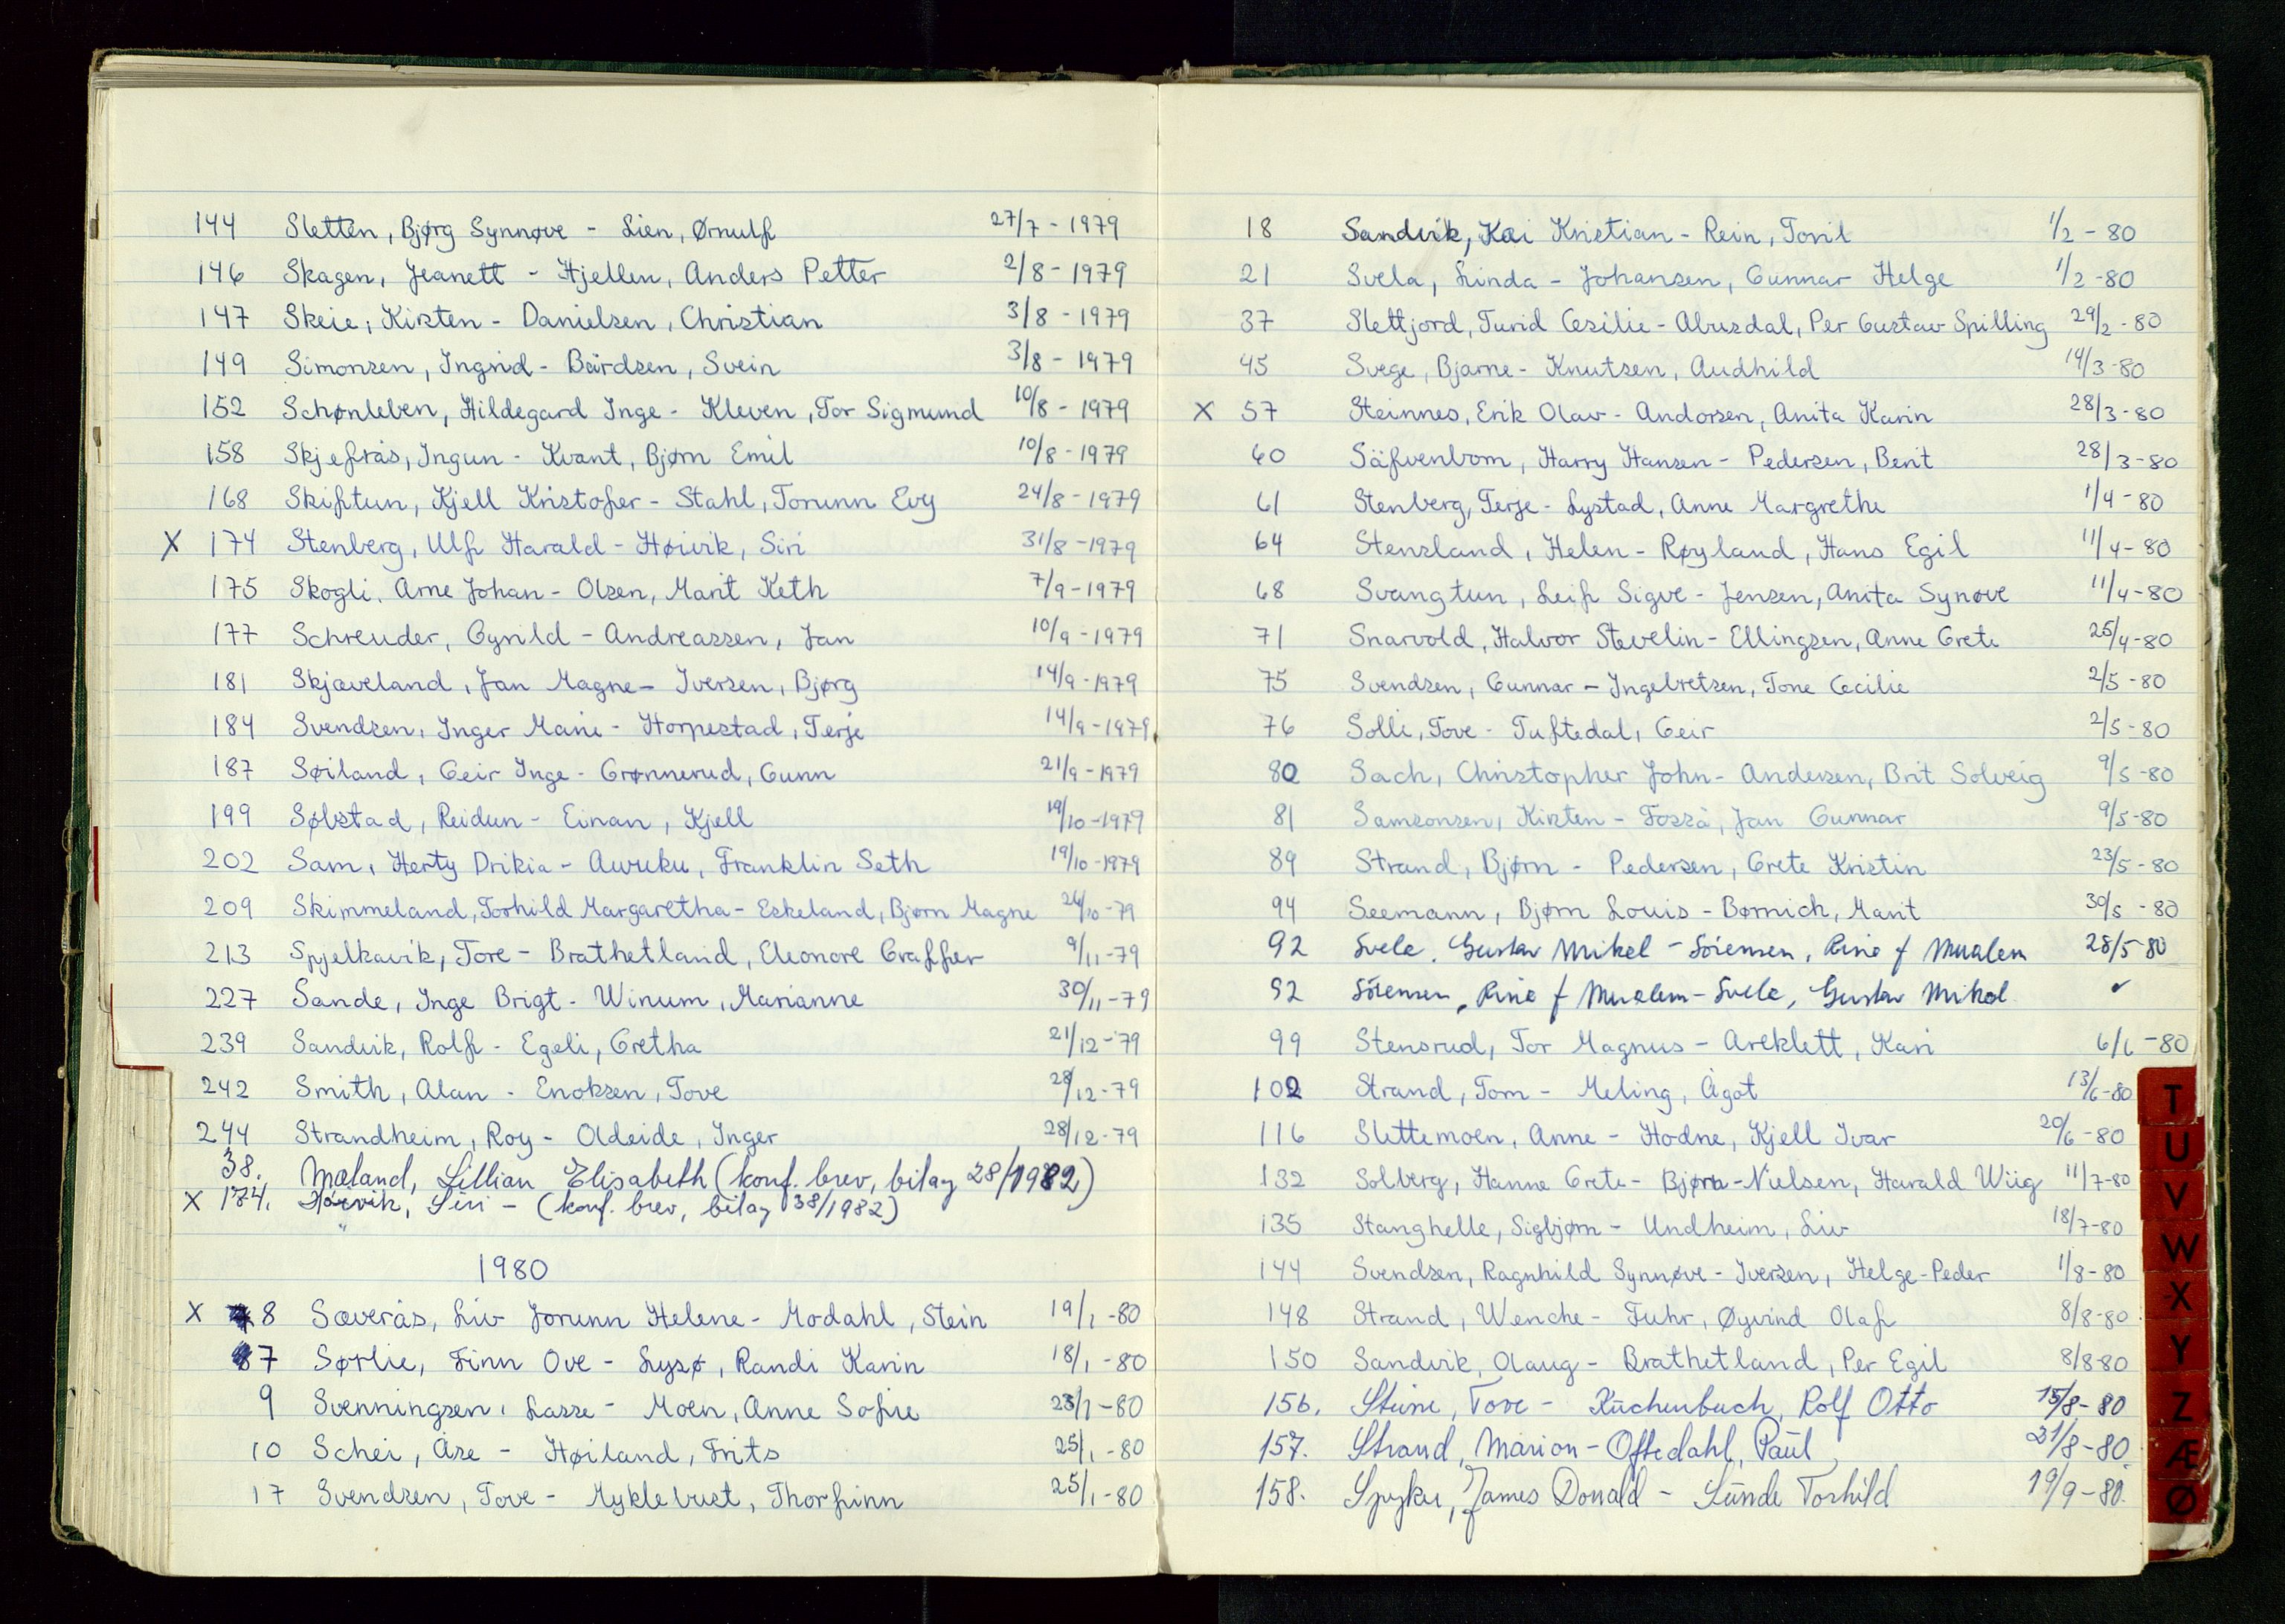 144 Sletten, Bjørg Synnøve - Lien, Ørnulf 27/7 - 1979
146 Skagen, Jeanett - Hjellen, Anders Petter 2/8 - 1979
147 Skeie, Kirsten - Danielsen, Christian 3/8 - 1979
149 Simonsen, Ingrid - Bårdsen, Svein 3/8 - 1979
152 Schønleben, Hildegard Inge - Kleven, Tor Sigmund 10/8 - 1979
158 Skjefrås, Ingun - Kvant, Bjørn Emil 10/8 - 1979
168 Skiftun, Kjell Kristofer - Stahl, Torunn Evy 24/8 - 1979
X 174 Stenberg, Ulf Harald - Høivik, Siri 31/8 - 1979
175 Skogli, Arne Johan - Olsen, Marit Keth 7/9 - 1979
177 Schreuder, Gynild - Andreassen, Jan 10/9 - 1979
181 Skjæveland, Jan Magne - Iversen, Bjørg 14/9 - 1979
184 Svendsen, Inger Marie - Horpestad, Terje 14/9 - 1979
187 Søiland, Geir Inge - Grønnerud, Gunn 21/9 - 1979
199 Sølstad, Reidun - Einan, Kjell 19/10 - 1979
202 Sam, Herty Drikia - Awuku, Franklin Seth 19/10 - 1979
209 Skimmeland, Torhild Margaretha - Eskeland, Bjørn Magne 26/10 - 79
213 Spjelkavik, Tore - Brathetland, Eleonore Graffer 9/11 - 79
227 Sande, Inge Brigt - Winum, Marianne 30/11 - 79
239 Sandvik, Rolf - Egeli, Gretha 21/12 - 79
242 Smith, Alan - Enoksen, Tove 28/12 - 79
244 Strandheim, Roy - Oldeide, Inger 28/12 - 79
38. Mæland, Lillian Elisabeth (konf. brev, bilag 28/1982)
X 174. Høivik, Siri - (konf. brev, bilag 38/1982)
1980
X 8 Sæverås, Liv Jorunn Helene - Modahl, Stein 19/1 - 80
7 Sørlie, Finn Ove - Lysø, Randi Karin 18/1 - 80
9 Svenningsen, Lasse - Moen, Anne Sofie 23/1 - 80
10 Schei, Åse - Høiland, Frits 25/1 - 80
17 Svendsen, Tove - Myklebust, Thorfinn 25/1 - 80
18 Sandvik, Kai Kristian - Rein, Toril 1/2 - 80
21 Svela, Linda - Johansen, Gunnar Helge 1/2 - 80
37 Slettjord, Turid Cesilie - Abusdal, Per Gustav Spilling 29/2 - 80
45 Svege, Bjarne - Knutsen, Audhild 14/3 - 80
X 57 Steinnes, Erik Olav - Andorsen, Anita Karin 28/3 - 80
60 Säfvenbom, Harry Hansen - Pedersen, Berit 28/3 - 80
61 Stenberg, Terje - Lystad, Anne Margrethe 1/4 - 80
64 Stensland, Helen - Røyland, Hans Egil 11/4 - 80
68 Svangtun, Leif Sigve - Jensen, Anita Synøve 11/4 - 80
71 Snarvold, Halvor Stevelin - Ellingsen, Anne Grete 25/4 - 80
75 Svendsen, Gunnar - Ingebretsen, Tone Cecilie 2/5 - 80
76 Solli, Tove - Tuftedal, Geir 2/5 - 80
80 Sach, Christopher John - Andersen, Brit Solveig 9/5 - 80
81 Samsonsen, Kirsten - Fosså, Jan Gunnar 9/5 - 80
89 Strand, Bjørn - Pedersen, Grete Kristin 23/5 - 80
94 Seemann, Bjørn Louis - Børnich, Marit 30/5 - 80
92 Svele, Gustav Mikal - Sörensen, Rina f Mualem 28/5 80
92 Sörensen, Rina f Mualem - Svele, Gustav Mikal
99 Stensrud, Tor Magnus - Areklett, Kari 6/6 - 80
102 Strand, Tom - Meling, Ågot 13/6 - 80
116 Slettemoen, Anne - Hodne, Kjell Ivar 20/6 - 80
132 Solberg, Hanne Grete - Bjørn-Nielsen, Harald Wiig 11/7 - 80
135 Stanghelle, Sigbjørn - Undheim, Liv 18/7 - 80
144 Svendsen, Ragnhild Synnøve - Iversen, Helge-Peder 1/8 - 80
148 Strand, Wenche - Fuhr, Øyvind Olaf 8/8 - 80
150 Sandvik, Olaug - Brathetland, Per Egil 8/8 80
156. Steine, Tove - Küchenbuch, Rolf Otto 15/8 - 80
157. Strand, Marion - Oftedahl, Paul 31/8 - 80
158. James Donald - Sunde Torhild 19/9 - 80
T
U
V
W
X
Y
Z
Æ
Ø